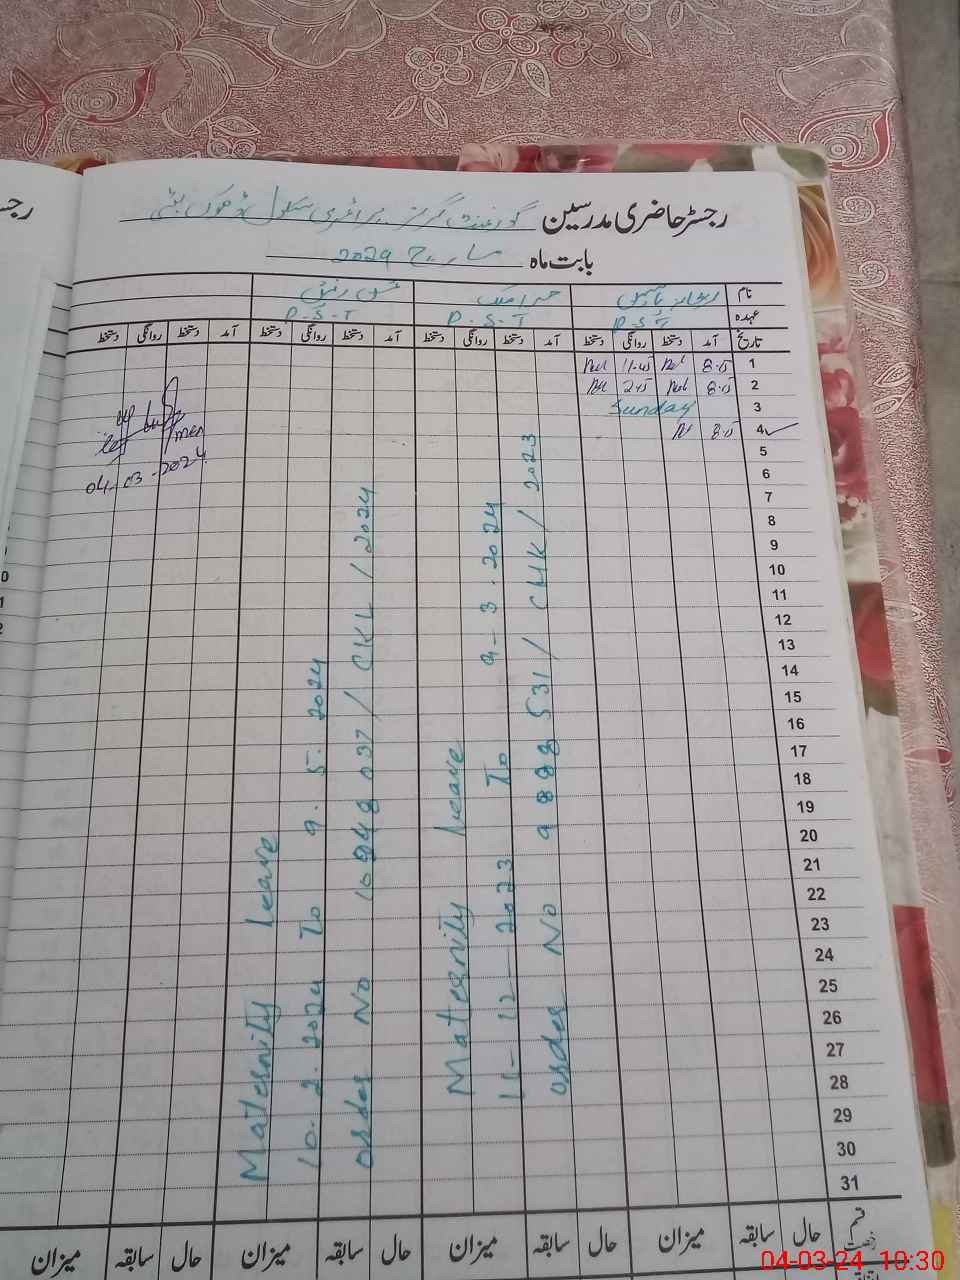 رجسٹر حاضری مدرسین گورنمنٹ گرلز پرائمری سکول ڈھوک
بابت ماہ مارچ 2024
نام
عہدہ P.S.T P.S.T P.S.T
تاریخ آمد دستخط روانگی دستخط آمد دستخط روانگی دستخط آمد دستخط روانگی دستخط آمد دستخط روانگی دستخط
1 8.15 11.45
2 8.15 2.15
3 Sunday
4 8.15
5
6
7
8
9
10
11
12
13
14
15
16
17
18
19
20
21
22
23
24
25
26
27
28
29
30
31
Maternity Leave
11-12-2023 To 9-3.2024
order No 9888531/CHK/2023
Maternity leave
10.2.2024 To 9.5.2024
order No
/CKL/2024
04-03-2024
قسم رخصت حال سابقہ میزان حال سابقہ میزان حال سابقہ میزان حال سابقہ میزان
رجسٹر
04-03-24 10:30